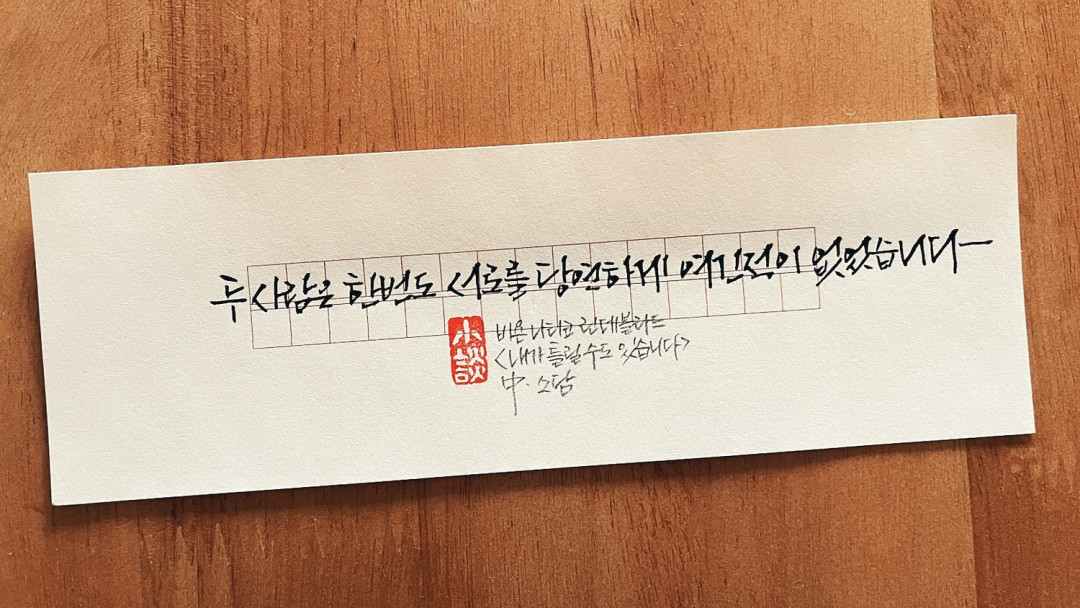 두 사람은 한번도 서로를 당연하게 여긴적이 없었습니다
小談
비욘 나티코 린데블라드
<내가 틀릴 수도 있습니다>
中. 소담